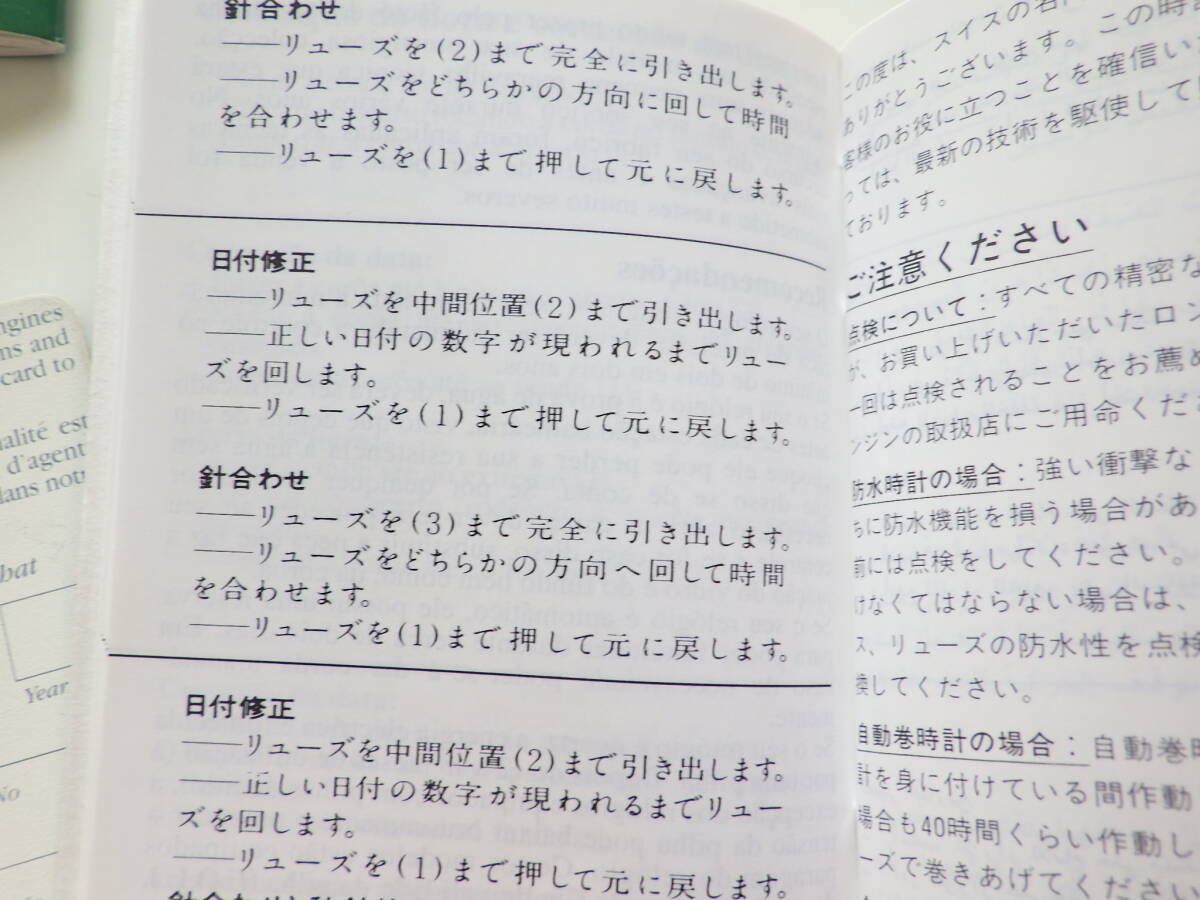 針合わせ
——リューズを(2)まで完全に引き出します。
——リューズをどちらかの方向に回して時間
を合わせます。
——リューズを(1)まで押して元に戻します。
日付修正
——リューズを中間位置(2)まで引き出します。
——正しい日付の数字が現われるまでリュー
ズを回します。
——リューズを(1)まで押して元に戻します。
針合わせ
——リューズを(3)まで完全に引き出します。
——リューズをどちらかの方向へ回して時間
を合わせます。
——リューズを(1)まで押して元に戻します。
日付修正
——リューズを中間位置(2)まで引き出します。
——正しい日付の数字が現われるまでリュー
ズを回します。
——リューズを(1)まで押して元に戻します。
針合わせ
この度は、スイスの名
ありがとうございます。この時
客様のお役に立つことを確信い
っては、最新の技術を駆使して
ております。
ご注意ください
点検について：すべての精密な
が、お買い上げいただいたロン
一回は点検されることをお薦め
ンジンの取扱店にご用命くださ
防水時計の場合：強い衝撃な
ちに防水機能を損う場合があ
前には点検をしてください。
けなくてはならない場合は、
ス、リューズの防水性を点検
換してください。
自動巻時計の場合：自動巻時
計を身に付けている間作動し
場合も40時間くらい作動し
ーズで巻きあげてください
ngines
ns and
card to
alité est
d'agent
dans not
bat
Year
No